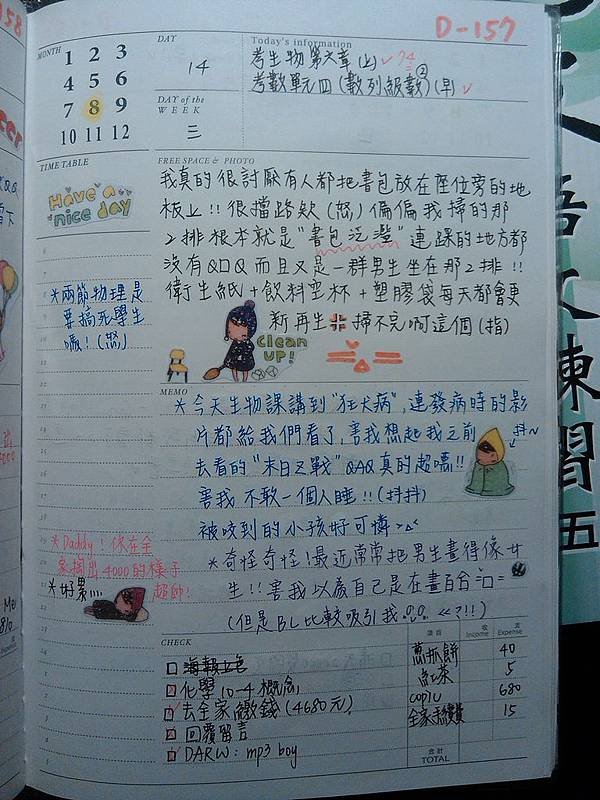 D-157
MONTH
1 2 3
4 5 6
7 8 9
10 11 12
DAY
14
DAY of the WEEK
三
Today's information
考生物第六章(上)✓74
考數單元四(數列級數)②(早)✓
TIME TABLE
Have a
nice day
*兩節物理是
要搞死學生
嗎!(怒)
*Daddy!你在全
家掏出4000的樣子
超帥!
*好累…
FREE SPACE & PHOTO
我真的很討厭有人都把書包放在座位旁的地
板上!!很擋路欸(怒)偏偏我掃的那
2排根本就是"書包泛濫"連踩的地方都
沒有QAQ而且又是一群男生坐在那2排!!
衛生紙+飲料空杯+塑膠袋每天都會更
新再生 掃不完啊這個(指)
clean
up!
MEMO
*今天生物課講到"狂犬病",連發病時的影
片都給我們看了,害我想起我之前
抖~
去看的"末日之戰"QAQ真的超噁!!
害我不敢一個人睡!!(抖抖)
被咬到的小孩好可憐>△<
*奇怪奇怪!最近常常把男生畫得像女
生!!害我以為自己是在畫百合=口=
(但是BL比較吸引我 <<?!!)
CHECK
項目
收 Income
支 Expense
海報上色
化學10-4概念
去全家繳錢(4680元)
回覆留言
DARW: mp3 boy
蔥抓餅 40
紅茶 5
copic 680
全家手續費 15
合計
TOTAL
習
五